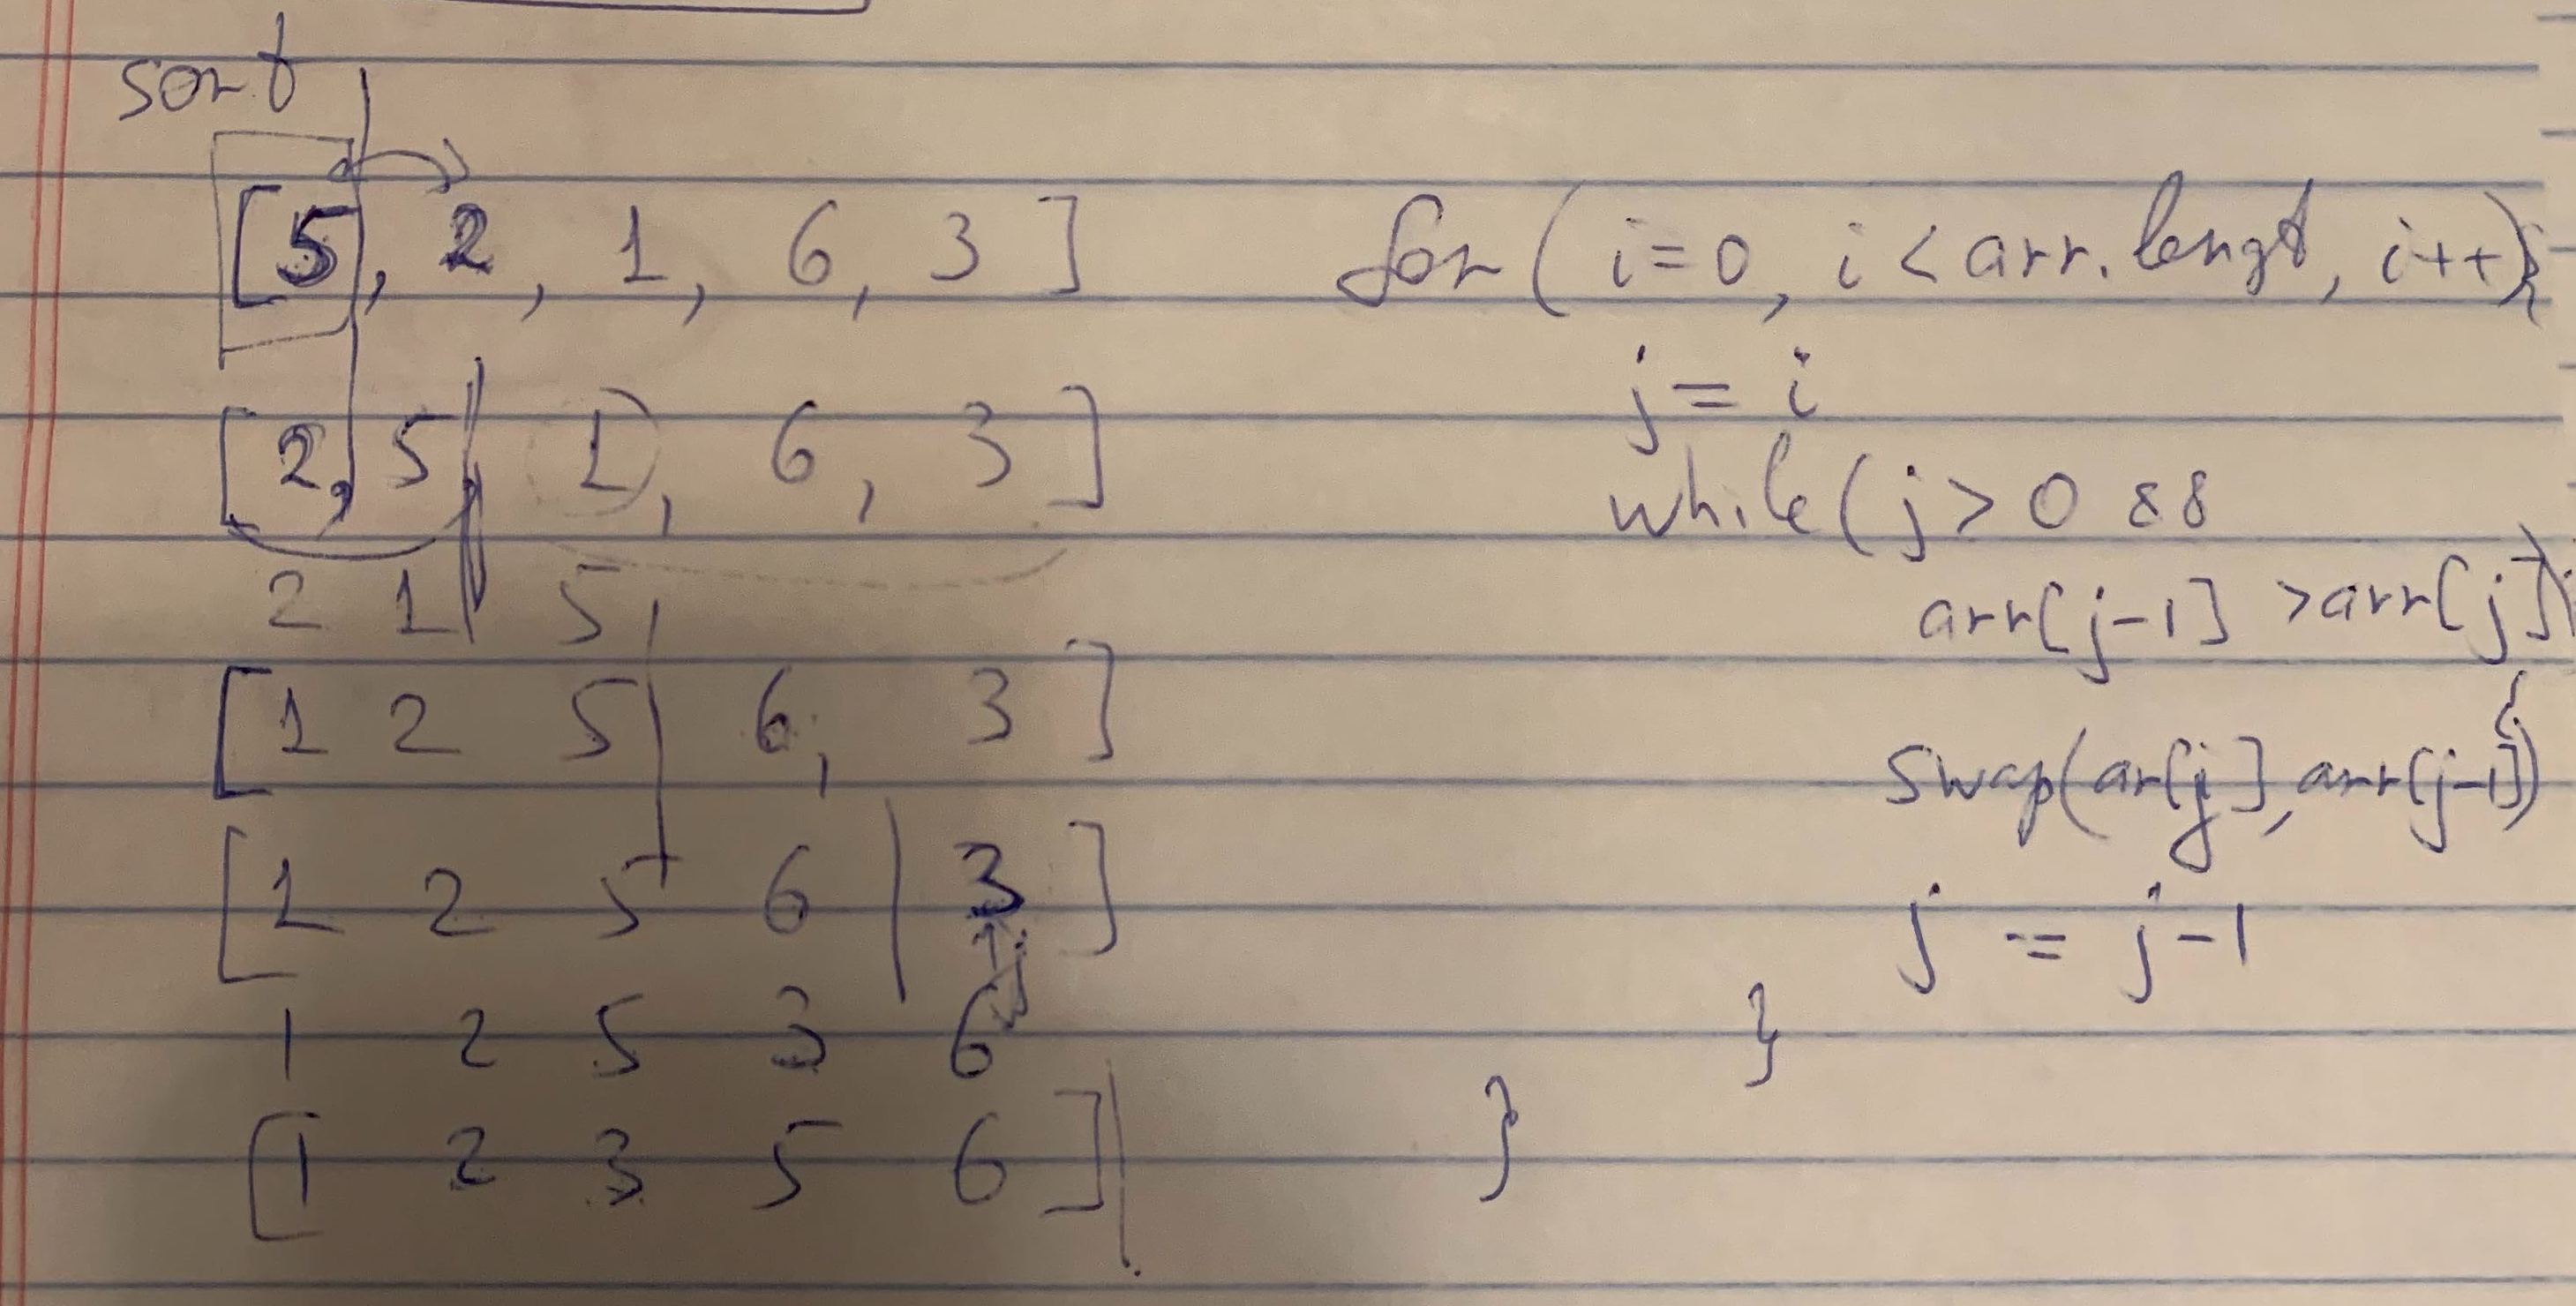 sort
[5, 2, 1, 6, 3]
[2, 5, 1, 6, 3]
2 1 5
[1 2 5 6, 3]
[1 2 5 6 3]
j
1 2 5 3 6
[1 2 3 5 6]
for (i=0, i < arr.lengt, i++){
j = i
while (j > 0 &&
arr[j-1] > arr[j])
{
swap(ar[j], arr[j-1])
j = j-1
}
}